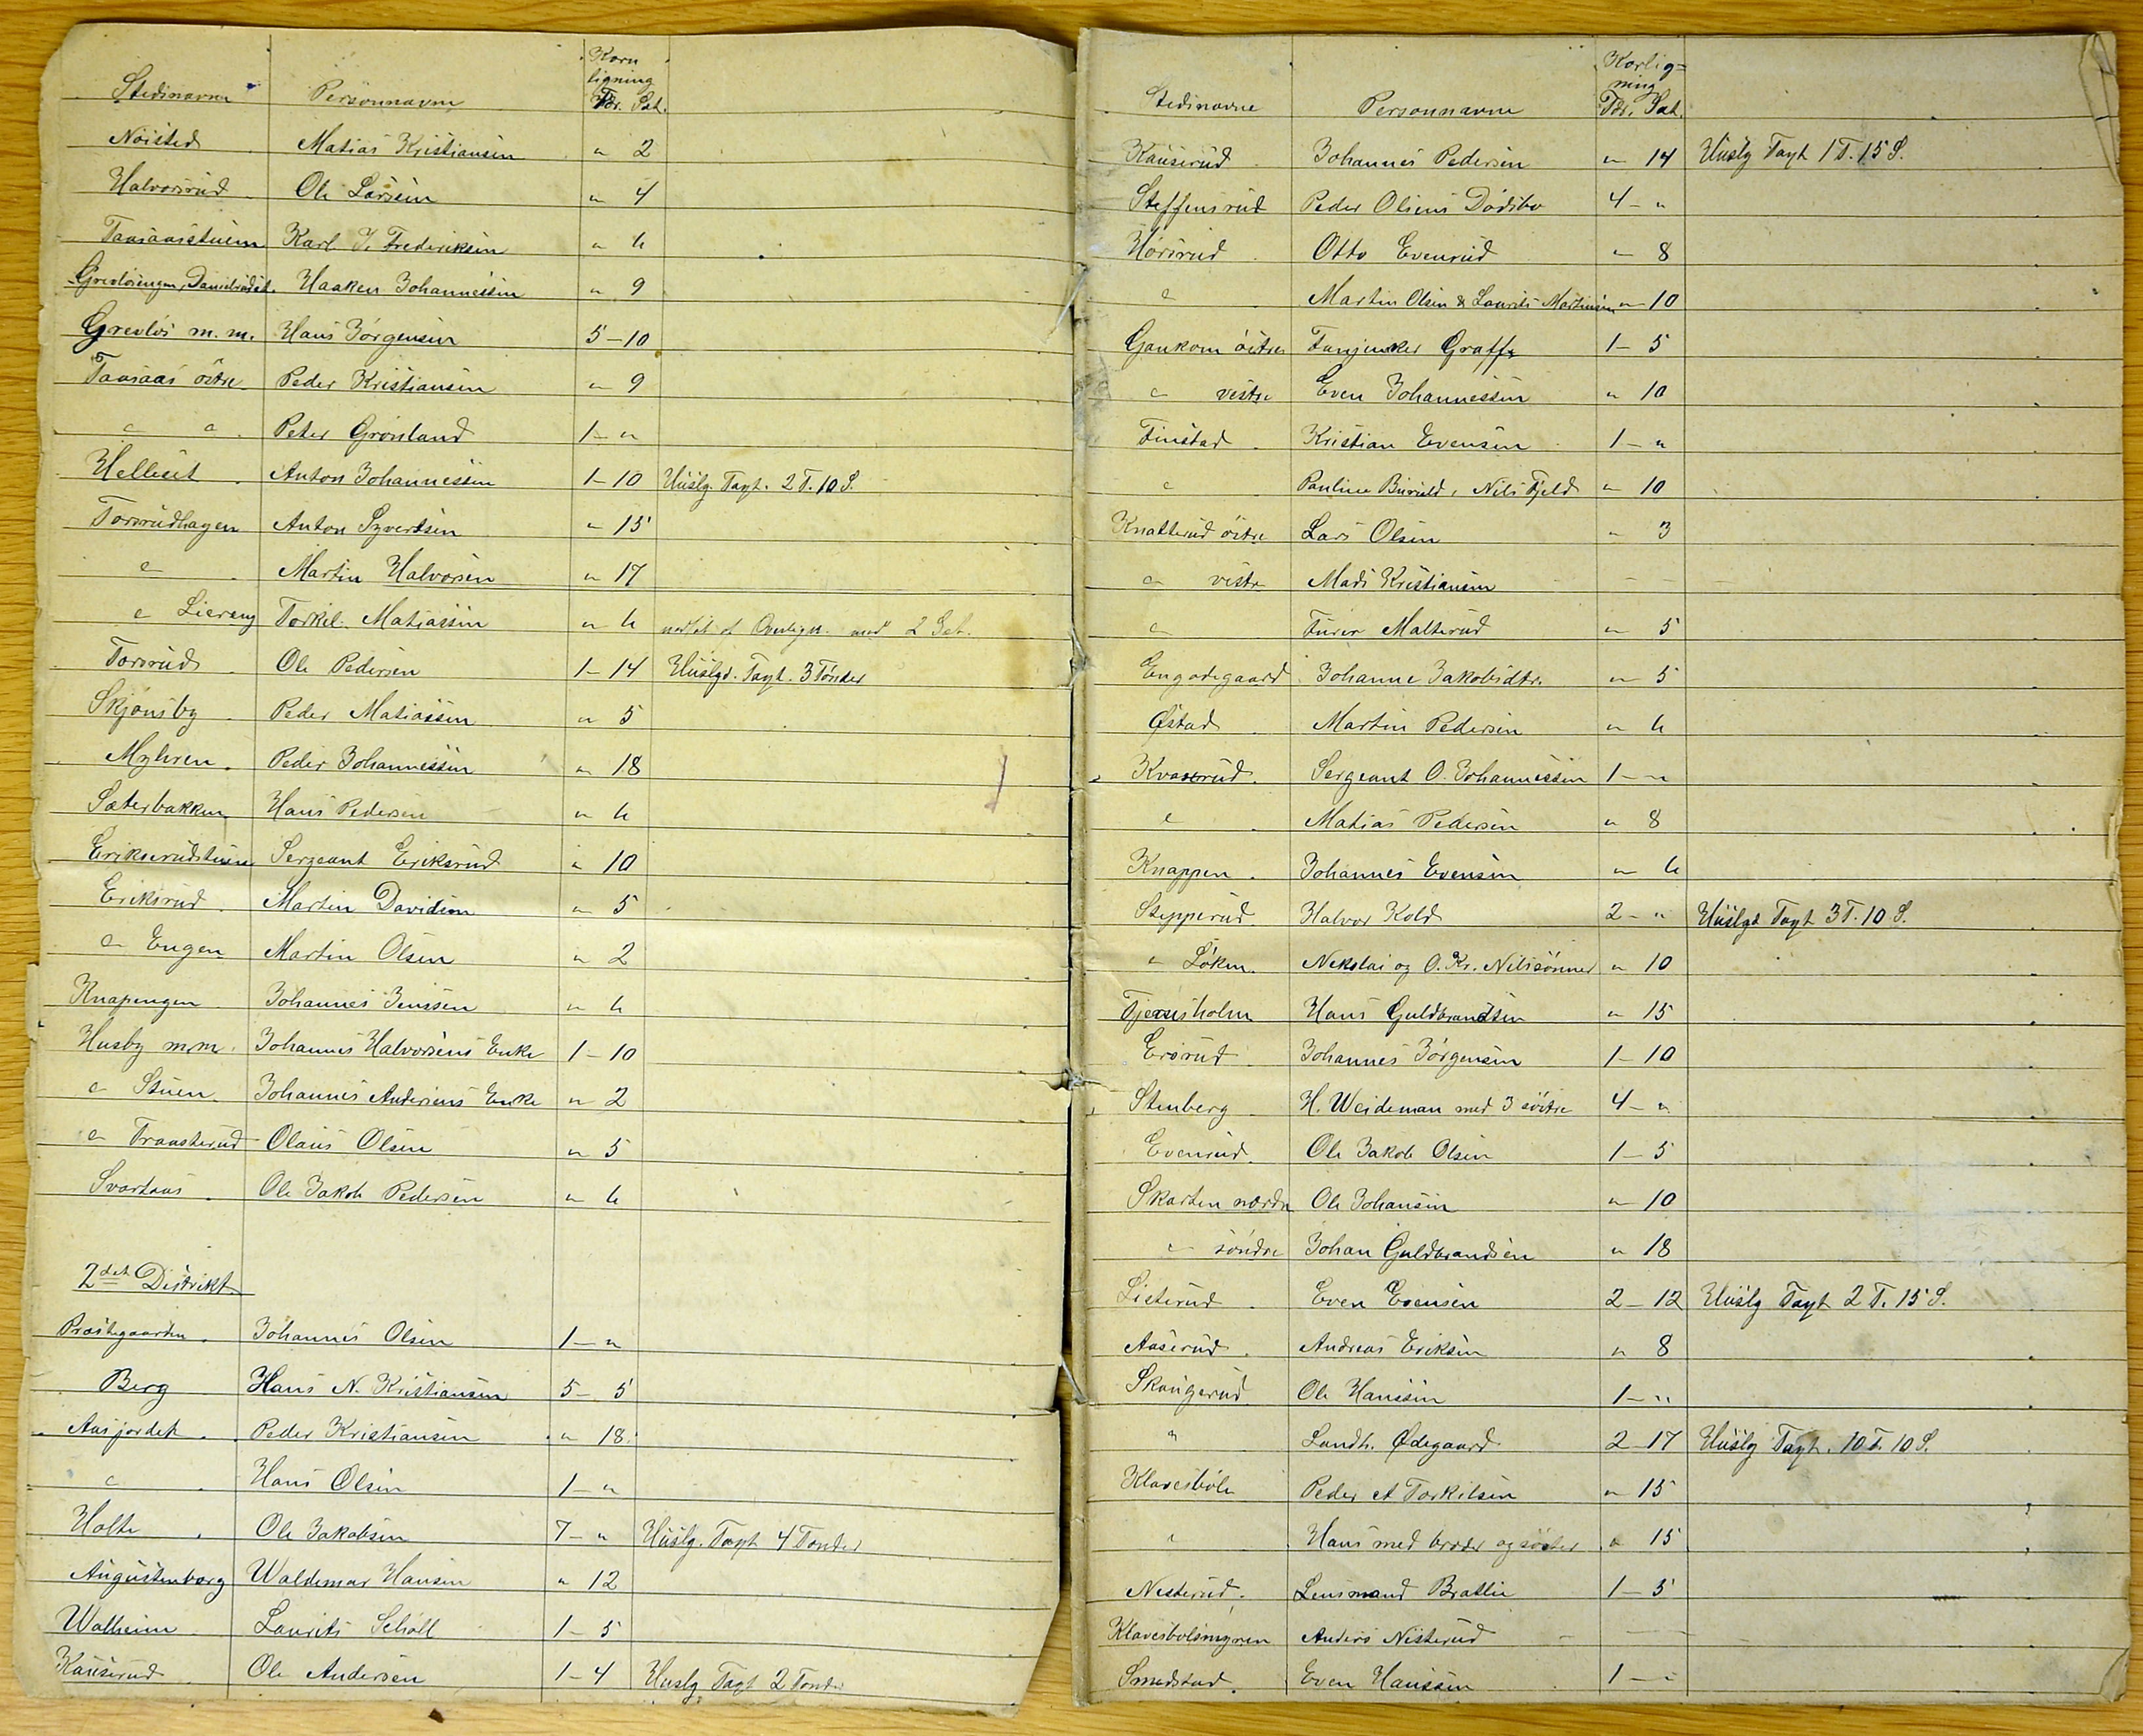 Stedsnavne Personnavne Korn ligning Tdr. Set.
Nøisted Matias Kristiansen " 2
Halvorsrud Ole Larsen " 4
Taasaasstuen Karl J. Frederiksen " 6
Grevlösengen, Haaken Johannessen " 9
Grevlös m. m. Hans Jörgensen 5 – 10
Taasaas östre Peder Kristiansen " 9
" " Peter Grönland 1 – "
Helleset Anton Johannessen 1 – 10 Huslg. Tayt. 2 T. 10 S.
Torsrudhagen Anton Syvertsen " 15
" Martin Halvorsen " 17
" Liereng Torkil Matiassen " 6 nedsat af Overlign. med 2 Set.
Torsrud Ole Pedersen 1 – 14 Huslgd. Tayt. 3 Tönder
Skjönsby Peder Matiassen " 5
Myhren Peder Johannessen " 18
Sæterbakken Hans Pedersen " 6
Erikserudstuen Sergeant Eriksrud " 10
Eriksrud Martin Davidsen " 5
" Engen Martin Olsen " 2
Knapengen Johannes Jenssen " 6
Husby m.m. Johannes Halvorsens Enke 1 – 10
" Stuen Johannes Andersens Enke " 2
" Traasterud Olaus Olsen " 5
Svartaas Ole Jakob Pedersen " 6
2det Distrikt
Præstegaarden Johannes Olsen 1 – "
Berg Hans N. Kristiansen 5 – 5
Aasjordet Peder Kristiansen " 18
" Hans Olsen 1 – "
Holte Ole Jakobsen 7 – " Huslg. Tayt 4 Tonder
Augustenborg Waldemar Hansen " 12
Walheim Laurits Schöll 1 – 5
Kauserud Ole Andersen 1 – 4 Huslg Tayt 2 Tonder
Stedsnavne Personnavne Korlig= ning Tdr. Set.
Kauserud Johannes Pedersen " 14 Huslg Tayt 1 T. 15 S.
Steffensrud Peder Olsens Dödsbo 4 – "
Horsrud Otto Evenrud " 8
" Martin Olsen & Laurits Martinsen " 10
Gaukom östre Fanjunker Graff 1 – 5
" vestre Even Johannessen " 10
Finstad Kristian Evensen 1 – "
" Pauline Nils Fjeld " 10
Knatterud östre Lars Olsen " 3
" vestre Mads Kristiansen – – –
" Furer Malterud " 5
Engodegaard Johanne Jakobsdtr. " 5
Østad Martin Pedersen " 6
Kvaserud Sergeant O. Johannessen 1 – "
" Matias Pedersen " 8
Knappen Johannes Evensen " 6
Stepperud Halvor Kold 2 – " Huslgd Tayt 3 T. 10 S.
" Löken Nekolai og O. Kr. Nilssönner " 10
Tjernsholm Hans Guldbrandsen " 15
Ersrud Johannes Jörgensen 1 – 10
Stenberg H. Weideman med 3 söstre 4 – "
Evenrud Ole Jakob Olsen 1 – 5
Skarten nordre Ole Johansen " 10
" söndre Johan Guldbrandsen " 18
Listerud Even Evensen 2 – 12 Huslg Tayt 2 T. 15 S.
Aaserud Andreas Eriksen " 8
Skaugerud Ole Hanssen 1 – "
" Landh. Ødegaard 2 – 17 Huslg Tayt. 10 T. 10 S.
Klavesböle Peder et Torkilsen " 15
" Hans med broder og söster " 15
Nesterud Lensmand Bratlie 1 – 5
Klavesbölsmyren Anders Nesterud – – –
Smedstad Even Hanssen 1 – "